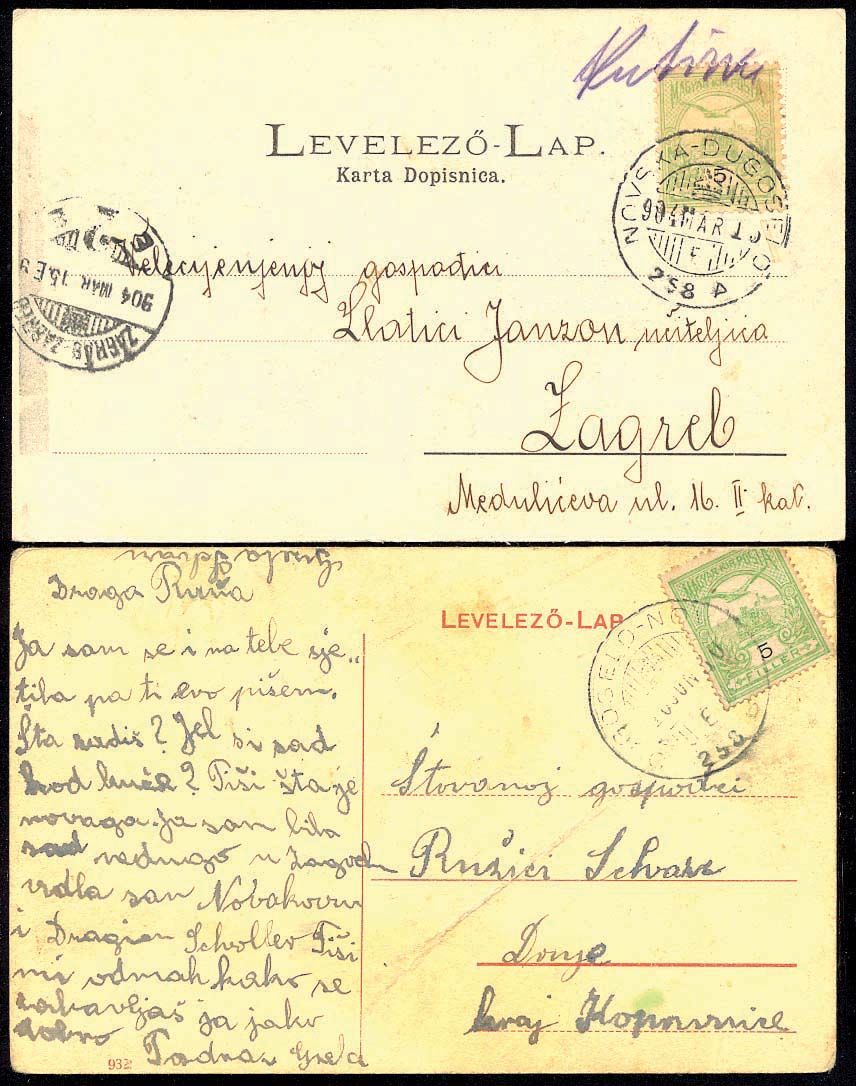 Kutina
MAGYAR KIR. POSTA
LEVELEZŐ-LAP.
Karta Dopisnica.
NOVSKA-DUGOSELO
904 MAR 1
258
904 MÁR. 15. E 9
ZÁGRÁB-ZAGREB
Velecijenjenoj gospođici
Zlatici Janzon učiteljica
Zagreb
Medulićeva ul. 16. II kat.
Draga Ruža
LEVELEZŐ-LAP
MAGYAR KIR. POSTA
5
FILLÉR
258
Ja sam se i na tebe sje„
tila pa ti evo pišem.
Šta radiš? Jel si sad
kod kuće? Piši šta je
novoga. Ja sam bila
sad nedugo u Zagrebu
vidla sam Novakovu
i Dragicu Scholler Piši
mi odmah kako se
zabavljaš ja jako
dobro
Štovanoj gospođici
Ružici Schwarz
Donje
kraj Koprivnice
932